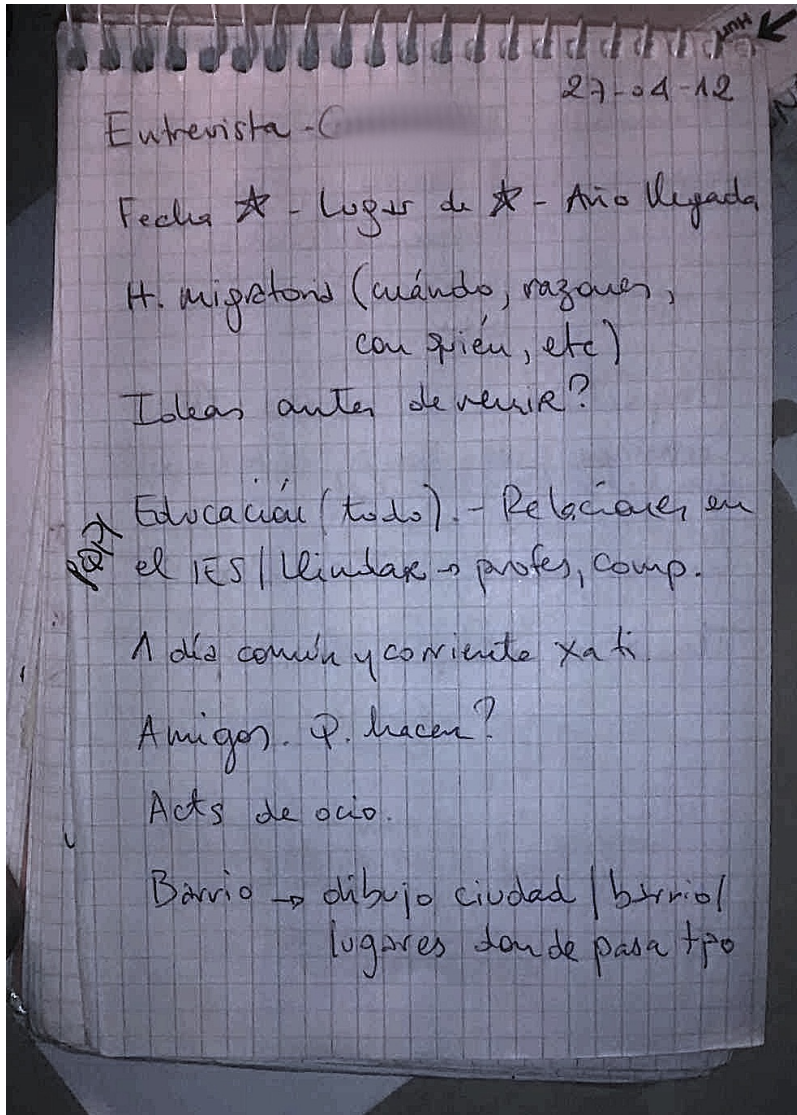 27-04-12
Entrevista -
Fecha ☆ - Lugar de ☆ - Año llegada
H. migratoria (cuándo, razones,
con quién, etc)
Ideas antes de venir?
Educación (todo). - Relaciones en
el IES / Llindar → profes, comp.
1 día común y corriente xa ti.
Amigos. Q. hacen?
Acts de ocio.
Barrio → dibujo ciudad / barrio /
lugares donde pasa tpo